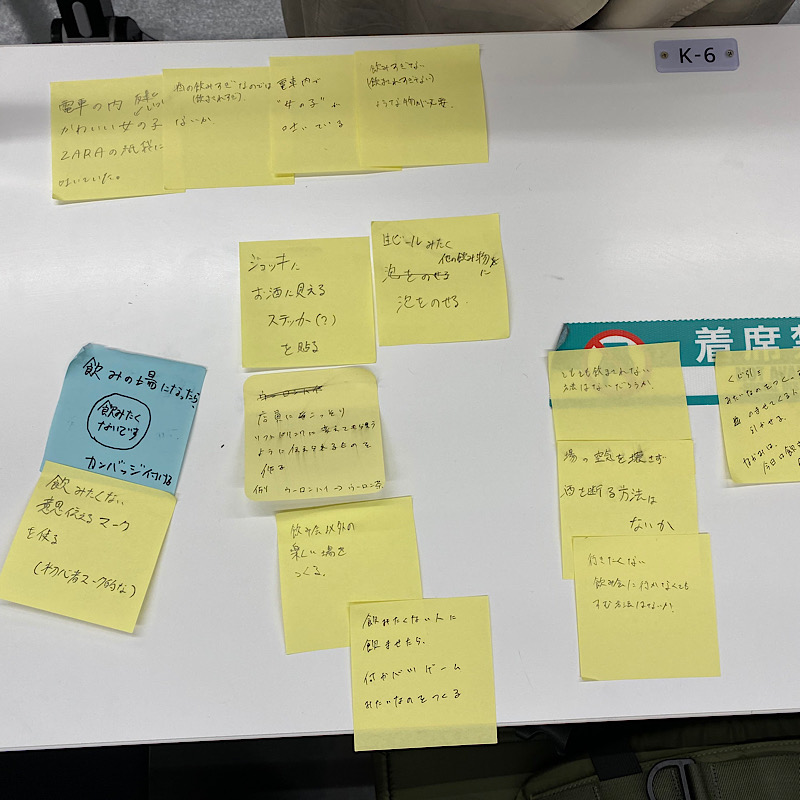 K-6
電車の内
かわいい女の子
ZARAの紙袋に
吐いていた。
お酒の飲みすぎなのでは
ないか
電車内で
"女の子"が
吐いている
飲みすぎない
(飲まされすぎない)
ような物が必要.
ジョッキに
お酒に見える
ステッカー(?)
を貼る
生ビールみたく
他の飲み物に
泡をのせる
泡をのせる.
着席
飲みの場になったら、
飲みたく
ないです
カンバッジ付ける
飲みたくない
意思伝えるマーク
を使る
(初心者マーク的な)
店員にこっそり
ソフトドリンクに変えてもらう
ように伝えられるものを
作る
例) ウーロンハイ→ウーロン茶
飲み会以外の
楽しい場を
つくる.
飲みたくない人に
飲ませたら、
何かバツゲーム
みたいなのをつくる
そもそも飲まされない
方法はないだろうか
場の空気を壊さず
酒を断る方法は
ないか
行きたくない
飲み会に行かなくても
すむ方法はないか
くじ引き
引かせる.